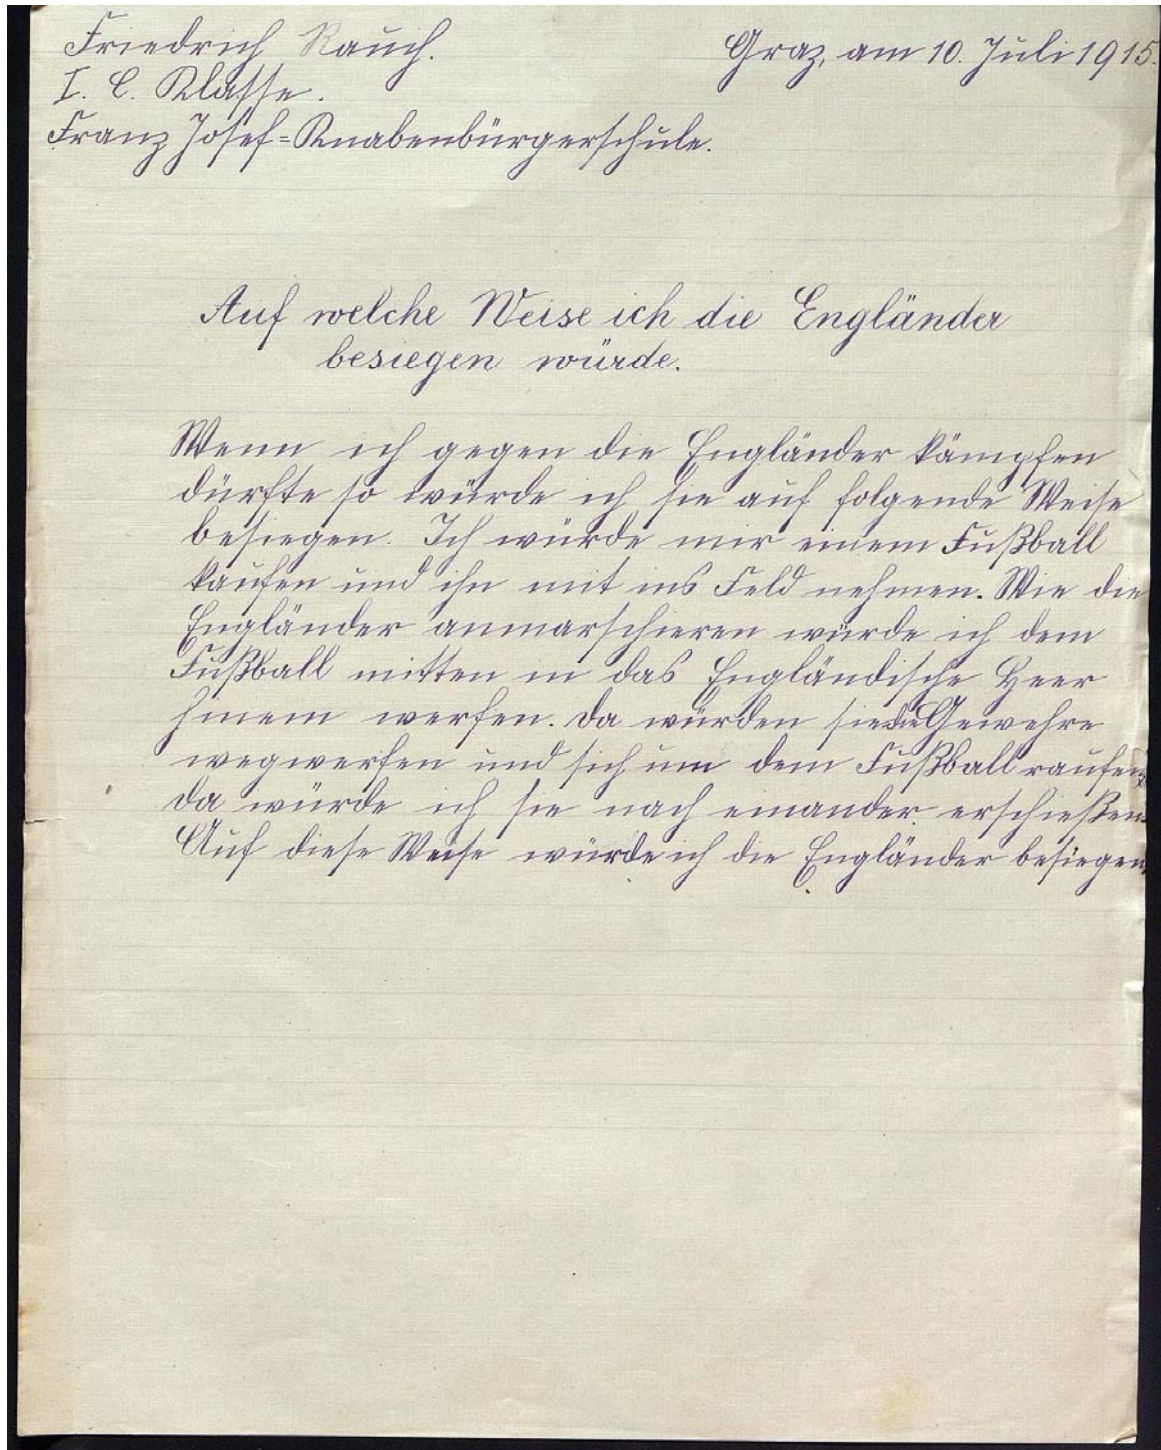 Friedrich Rauch.
Graz, am 10. Juli 1915.
I. C. Klasse.
Franz Josef=Knabenbürgerschule.
Auf welche Weise ich die Engländer
besiegen würde.
Wenn ich gegen die Engländer kämpfen
dürfte so würde ich sie auf folgende Weise
besiegen. Ich würde mir einem Fußball
kaufen und ihn mit ins Feld nehmen. Wie die
Engländer anmarschieren würde ich dem
Fußball mitten in das Engländische Heer
hinein werfen. Da würden sie die Gewehre
wegwerfen und sich um dem Fußball raufen.
Da würde ich sie nach einander erschießen.
Auf diese Weise würde ich die Engländer besiegen.